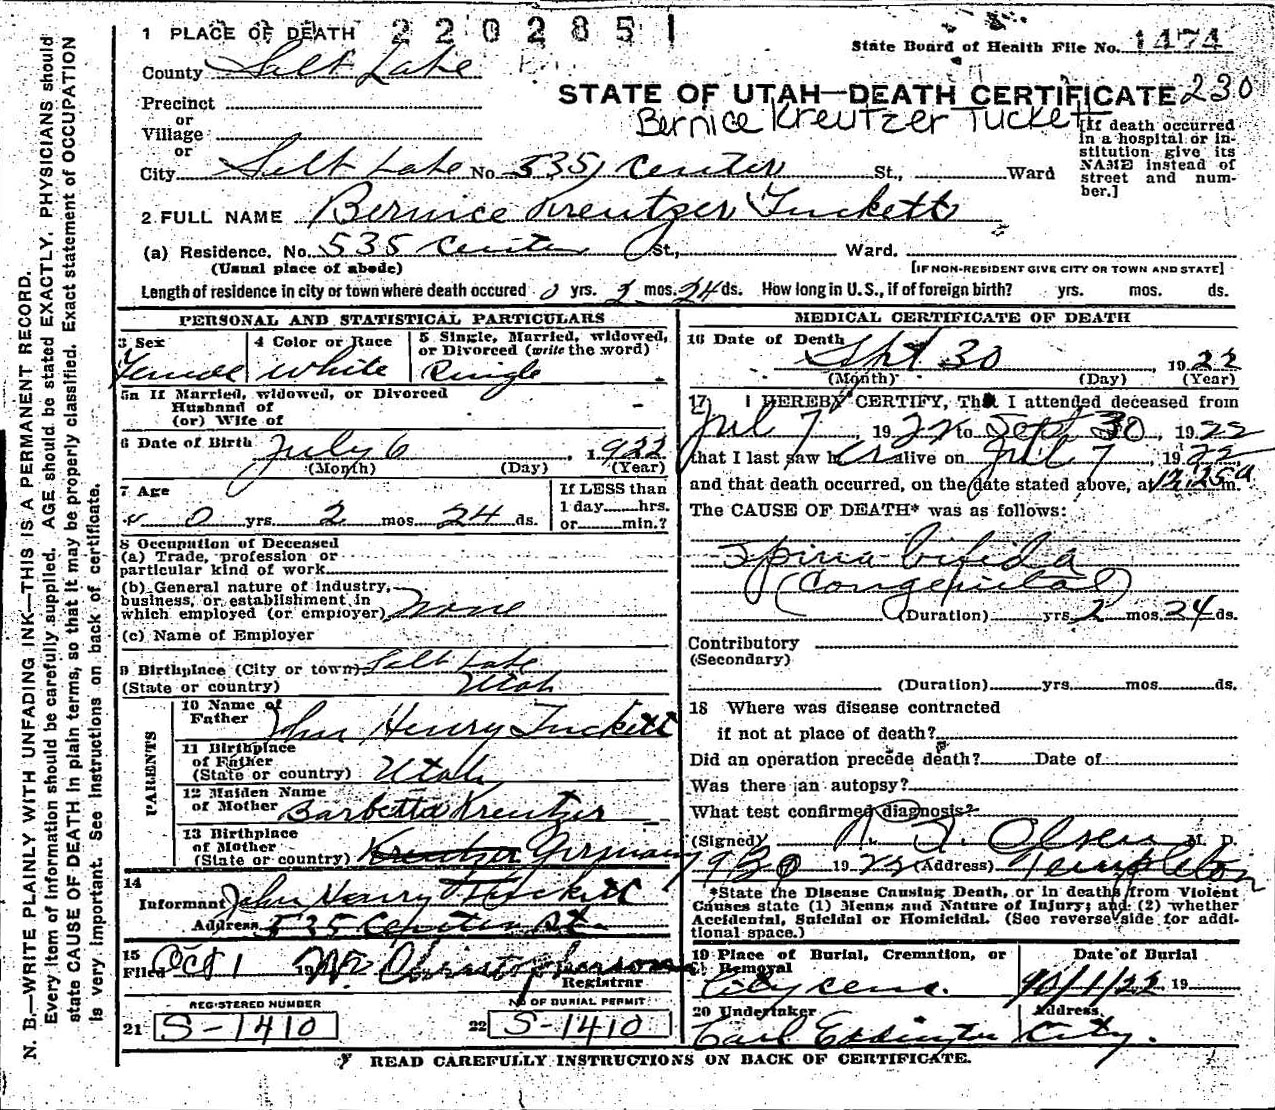 1 PLACE OF DEATH 2202851
State Board of Health File No. 1474
County Salt Lake
STATE OF UTAH—DEATH CERTIFICATE 230
Precinct
or
Bernice Kreutzer Tuckett
Village
or
[If death occurred in a hospital or institution give its NAME instead of street and number.]
City Salt Lake No. 535 Center St., Ward
2. FULL NAME Bernice Kreutzer Tuckett
(a) Residence, No. 535 Center St., Ward.
(Usual place of abode) [IF NON-RESIDENT GIVE CITY OR TOWN AND STATE]
Length of residence in city or town where death occured 0 yrs. 2 mos. 24 ds. How long in U.S., if of foreign birth? yrs. mos. ds.
N. B.—WRITE PLAINLY WITH UNFADING INK—THIS IS A PERMANENT RECORD.
Every item of information should be carefully supplied. AGE should be stated EXACTLY. PHYSICIANS should
state CAUSE OF DEATH in plain terms, so that it may be properly classified. Exact statement of OCCUPATION
is very important. See instructions on back of certificate.
PERSONAL AND STATISTICAL PARTICULARS
3 Sex 4 Color or Race 5 Single, Married, widowed,
or Divorced (write the word)
Female White Single
5a If Married, widowed, or Divorced
Husband of
(or) Wife of
6 Date of Birth July 6, 1922
(Month) (Day) (Year)
7 Age
0 yrs. 2 mos. 24 ds.
If LESS than
1 day hrs.
or min.?
8 Occupation of Deceased
(a) Trade, profession or
particular kind of work
(b) General nature of industry,
business, or establishment in
which employed (or employer) None
(c) Name of Employer
9 Birthplace (City or town) Salt Lake
(State or country) Utah
PARENTS
10 Name of
Father John Henry Tuckett
11 Birthplace
of Father
(State or country) Utah
12 Maiden Name
of Mother Barbetta Kreutzer
13 Birthplace
of Mother
(State or country) Kreutzer Germany
14
Informant John Henry Tuckett
Address 535 Center St.
15
Filed Oct 1 19
Registrar
REGISTERED NUMBER NO OF BURIAL PERMIT
21 S-1410 22 S-1410
MEDICAL CERTIFICATE OF DEATH
16 Date of Death
Sept 30, 1922
(Month) (Day) (Year)
17 I HEREBY CERTIFY, That I attended deceased from
Jul 7, 1922 to Sept 30, 1922
that I last saw her alive on Jul 7, 1922
and that death occurred, on the date stated above, at 12:25a m.
The CAUSE OF DEATH* was as follows:
Spina bifida
(Congenital)
(Duration) yrs. 2 mos. 24 ds.
Contributory
(Secondary)
(Duration) yrs. mos. ds.
18 Where was disease contracted
if not at place of death?
Did an operation precede death? Date of
Was there an autopsy?
What test confirmed diagnosis?
(Signed) Olsen M. D.
9/30 1922 (Address) Templeton
*State the Disease Causing Death, or in deaths from Violent
Causes state (1) Means and Nature of Injury; and (2) whether
Accidental, Suicidal or Homicidal. (See reverse side for addi-
tional space.)
19 Place of Burial, Cremation, or Date of Burial
Removal
City cem. 10/1/22 19
20 Undertaker Address
Carl Eddington City.
READ CAREFULLY INSTRUCTIONS ON BACK OF CERTIFICATE.